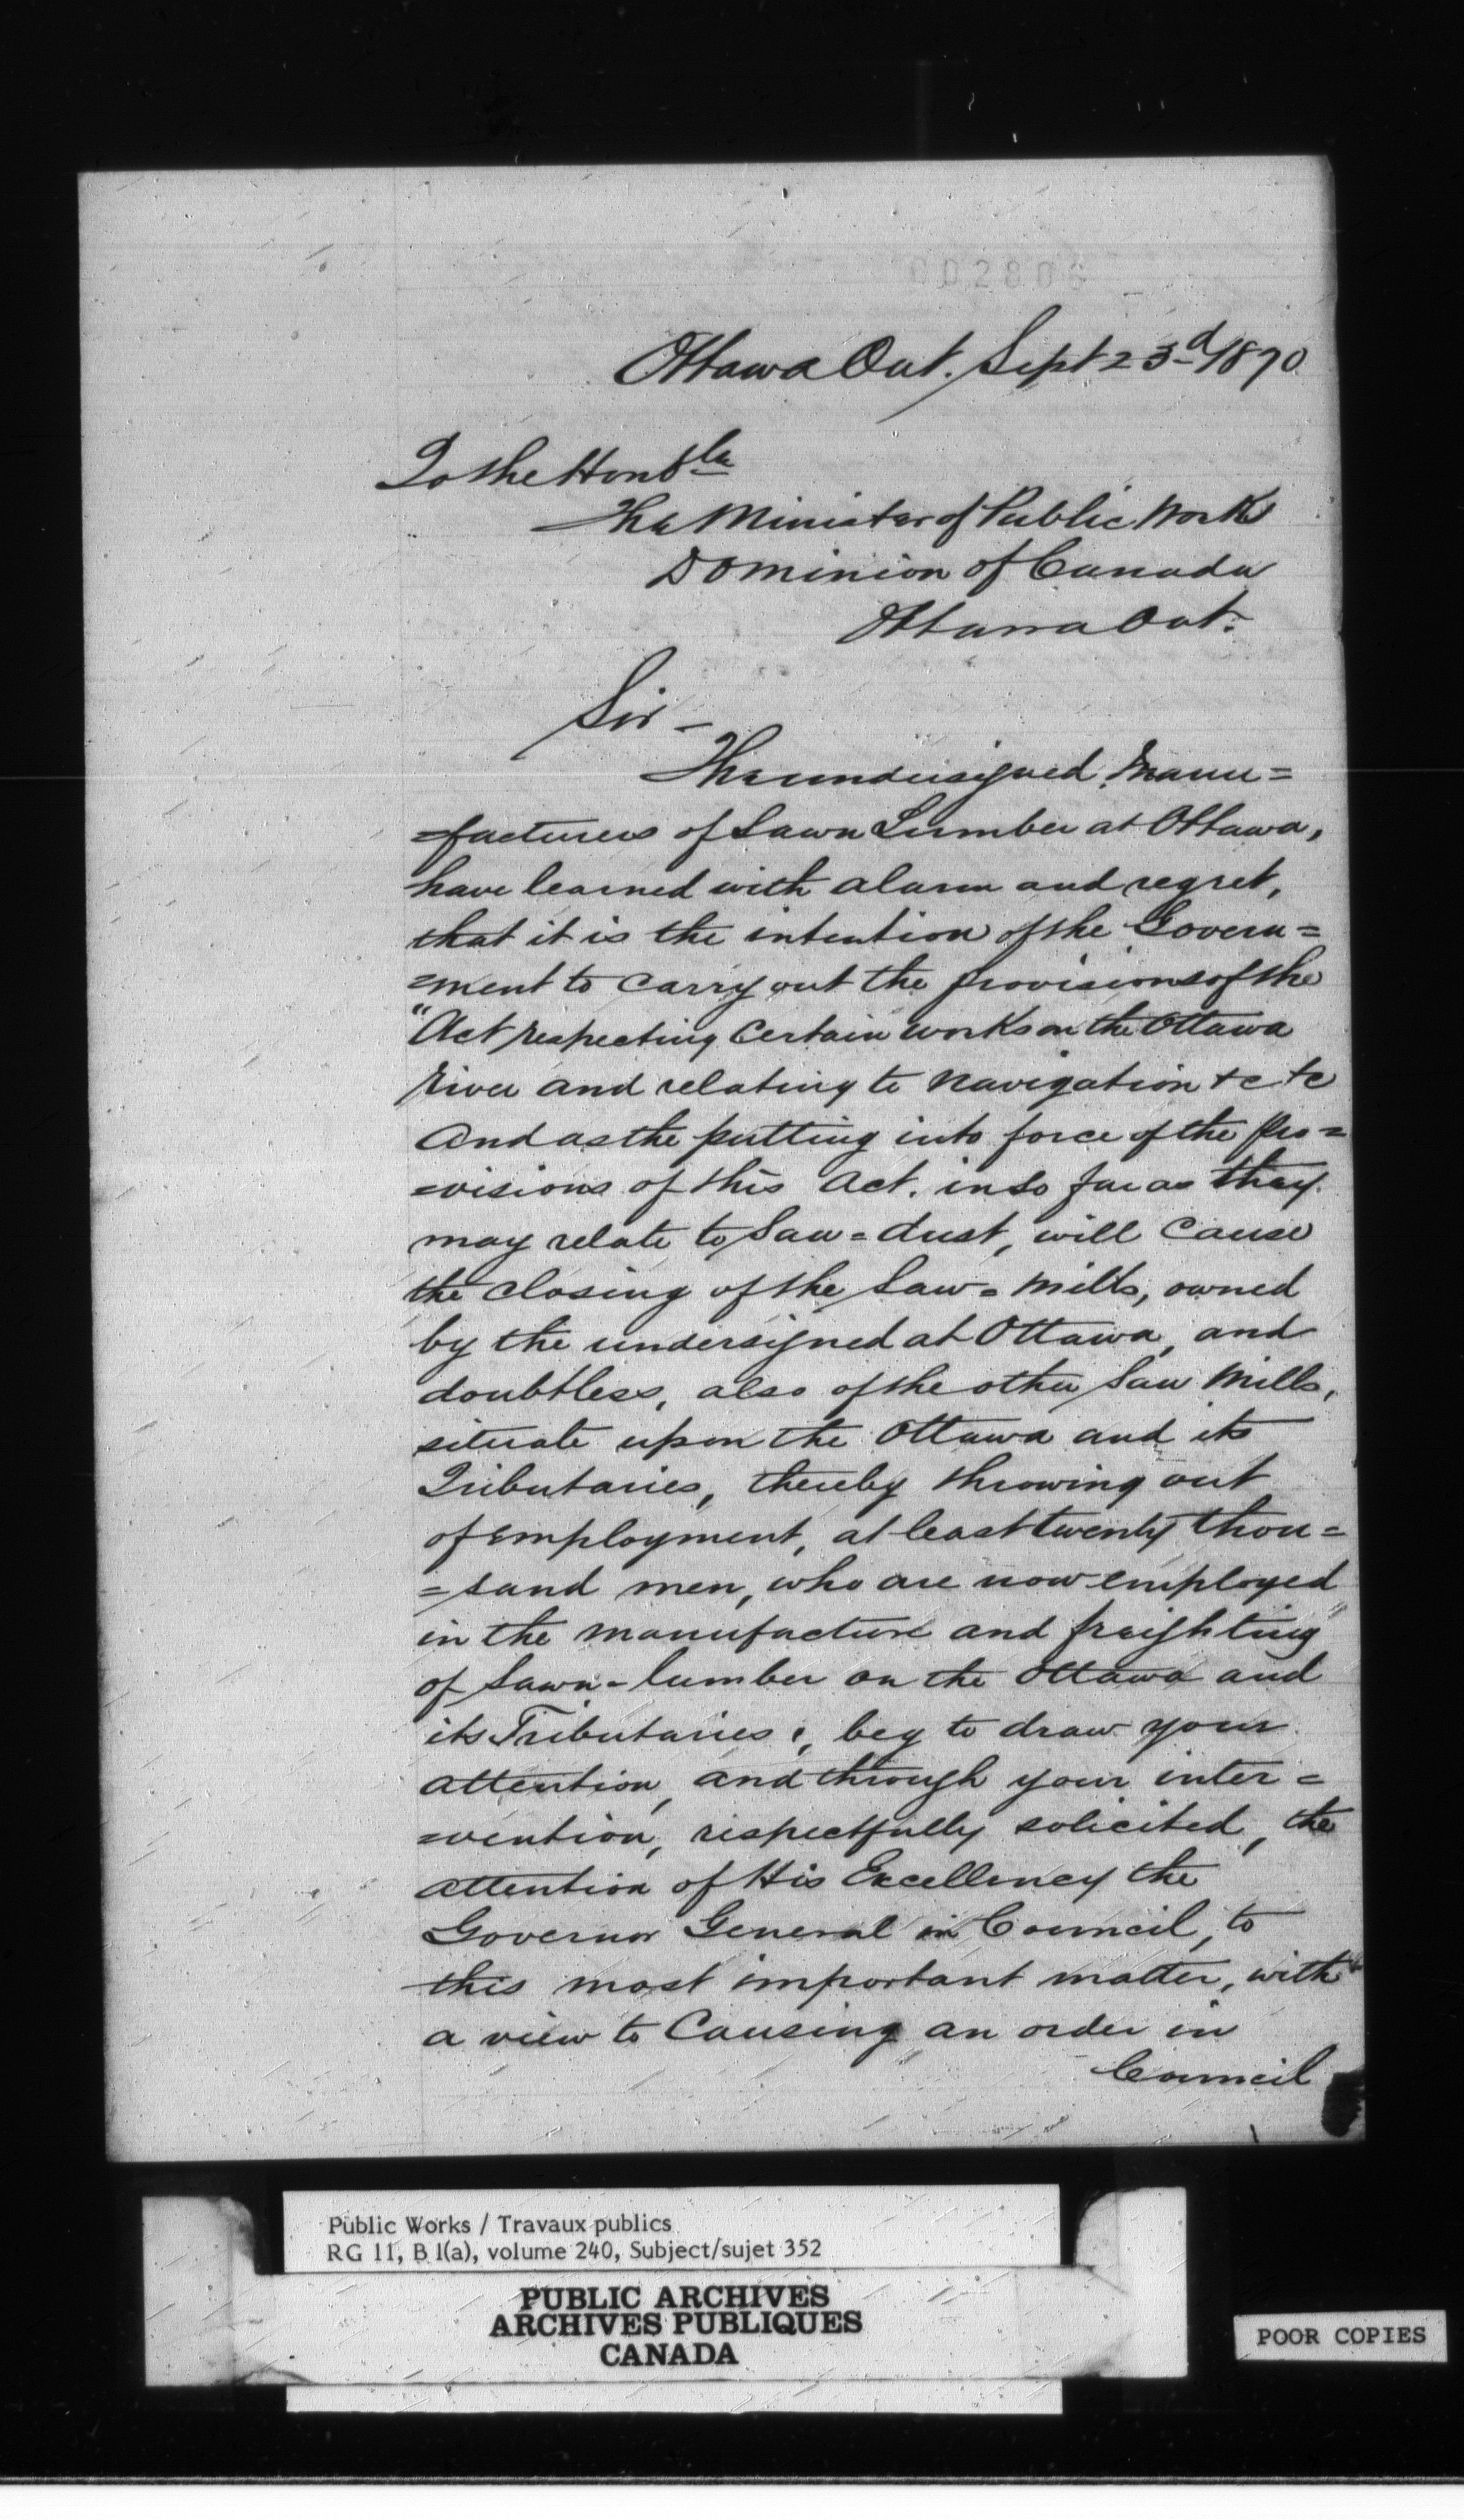 002806
Ottawa Ont. Sept 23d/1870
To the Honble
The Minister of Public Works
Dominion of Canada
Ottawa Ont.
Sir –
The undersigned, Manu=
=facturers of Sawn Lumber at Ottawa,
have learned with alarm and regret,
that it is the intention of the Govern=
=ment to carry out the provisions of the
"Act respecting Certain works on the Ottawa
River and relating to Navigation &c &c
And as the putting into force of the pro=
=visions of this Act. in so far as they
may relate to Saw=dust, will cause
the closing of the Saw=Mills, owned
by the undersigned at Ottawa, and
doubtless, also of the other Saw Mills,
situate upon the Ottawa and its
Tributaries, thereby throwing out
of employment, at least twenty thou=
=sand men, who are now employed
in the manufacture and freighting
of Sawn=lumber on the Ottawa and
its Tributaries, beg to draw your
attention, and through your inter=
=vention, respectfully solicited, the
attention of His Excellency the
Governor General in Council, to
this most important matter, with
a view to Causing an order in
Council
Public Works / Travaux publics
RG 11, B 1(a), volume 240, Subject/sujet 352
PUBLIC ARCHIVES
ARCHIVES PUBLIQUES
CANADA
POOR COPIES